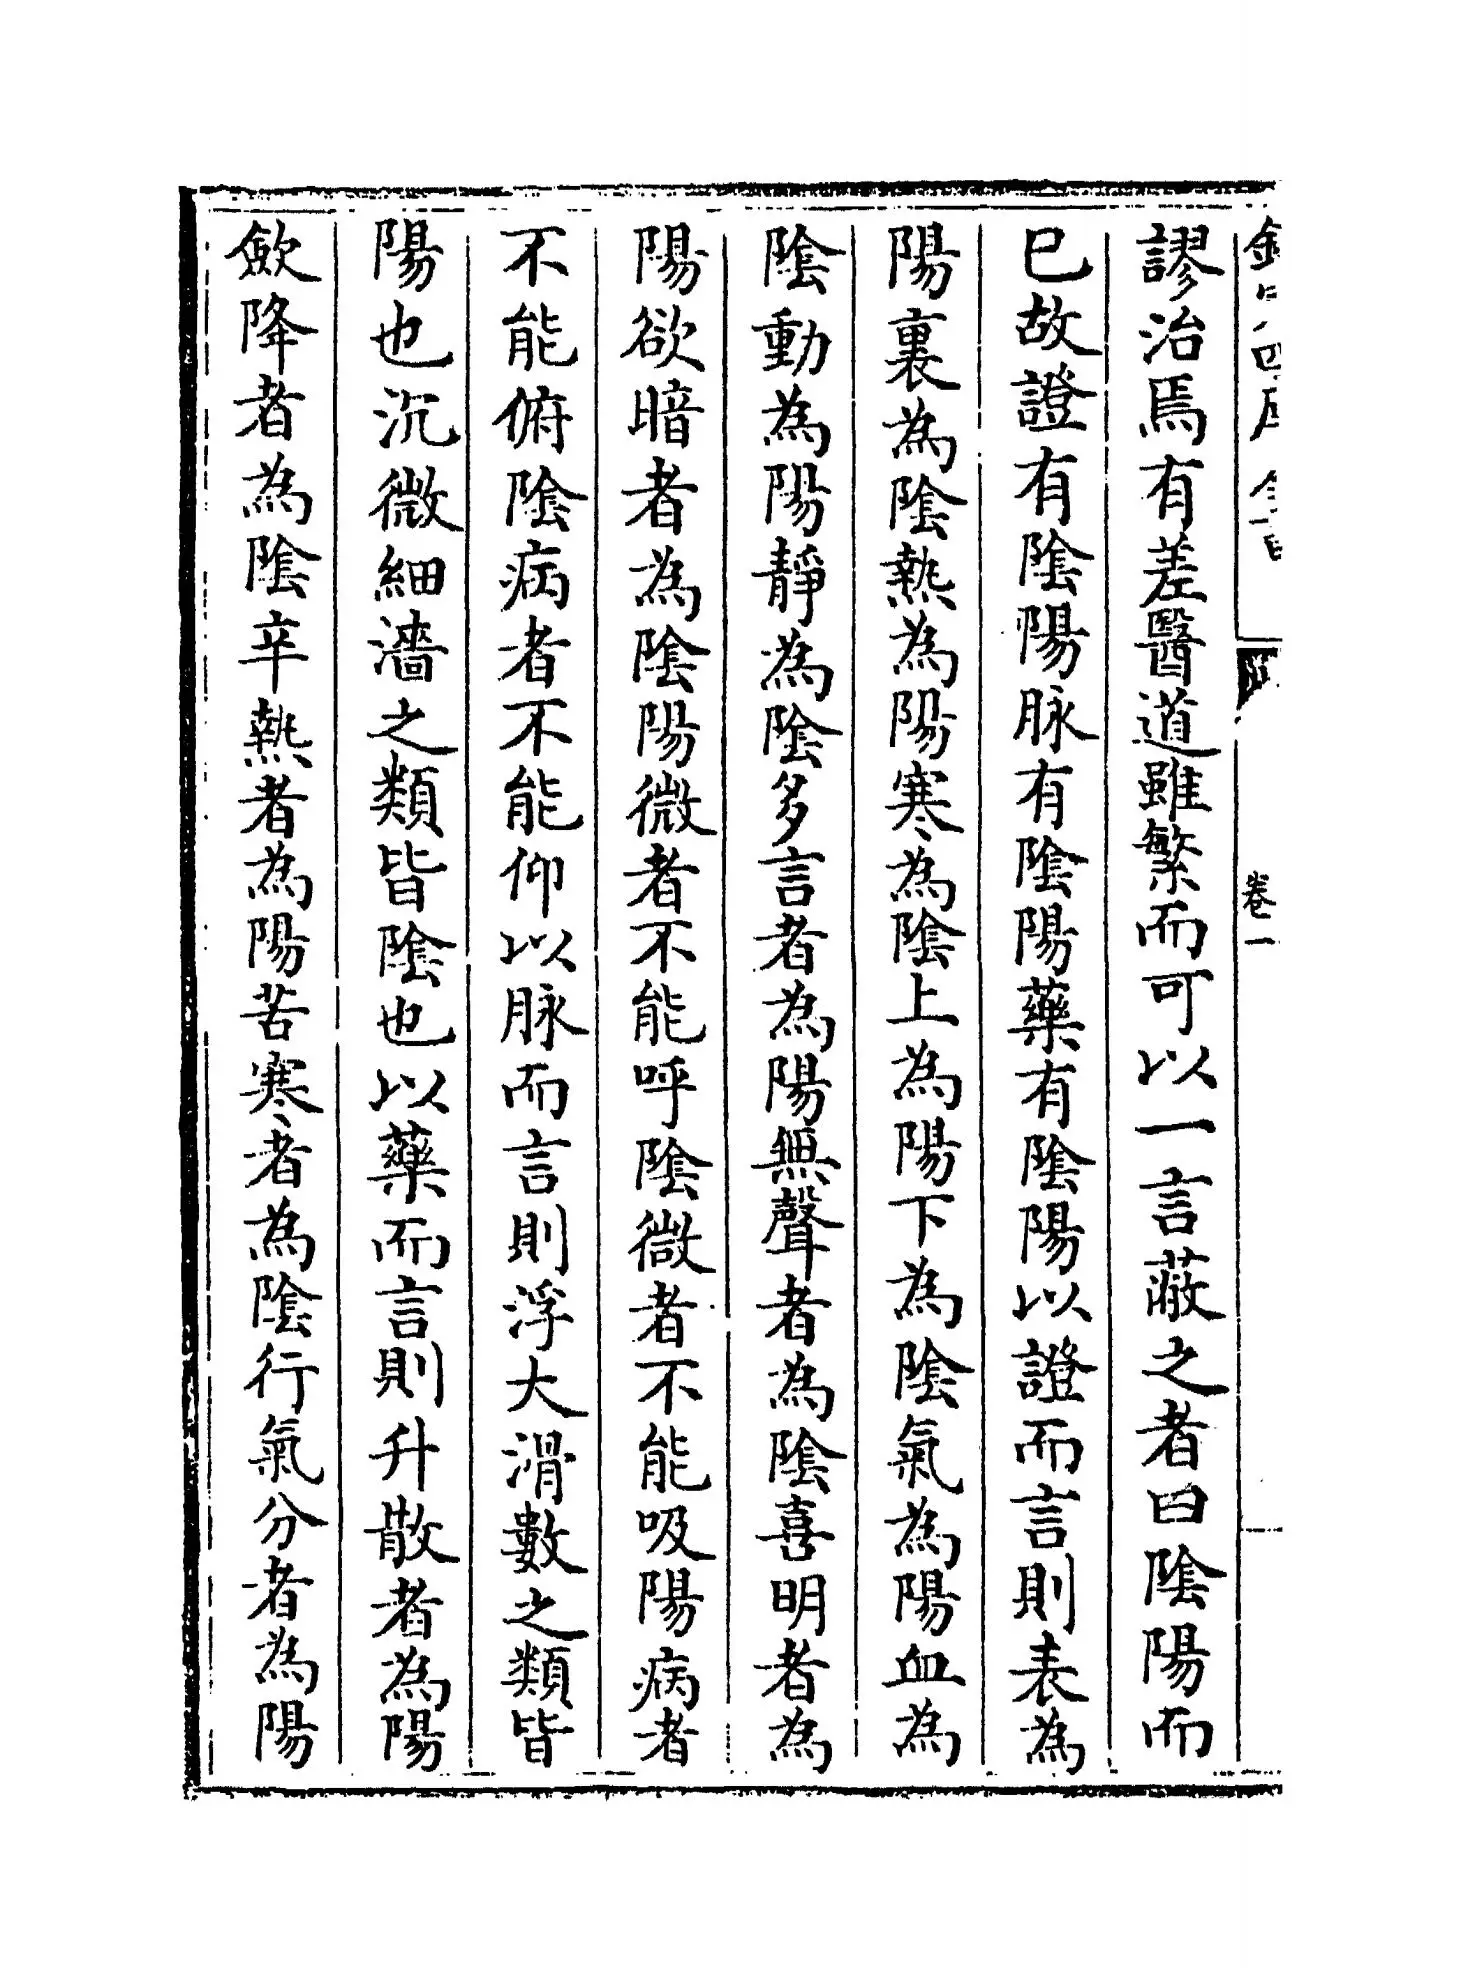 謬治焉有差醫道雖繁而可以一言蔽之者曰陰陽而
已故證有陰陽脉有陰陽藥有陰陽以證而言則表為
陽裏為陰熱為陽寒為陰上為陽下為陰氣為陽血為
陰動為陽靜為陰多言者為陽無聲者為陰喜明者為
陽欲暗者為陰陽微者不能呼陰微者不能吸陽病者
不能俯陰病者不能仰以脉而言則浮大滑數之類皆
陽也沉微細濇之類皆陰也以藥而言則升散者為陽
歛降者為陰辛熱者為陽苦寒者為陰行氣分者為陽
卷一